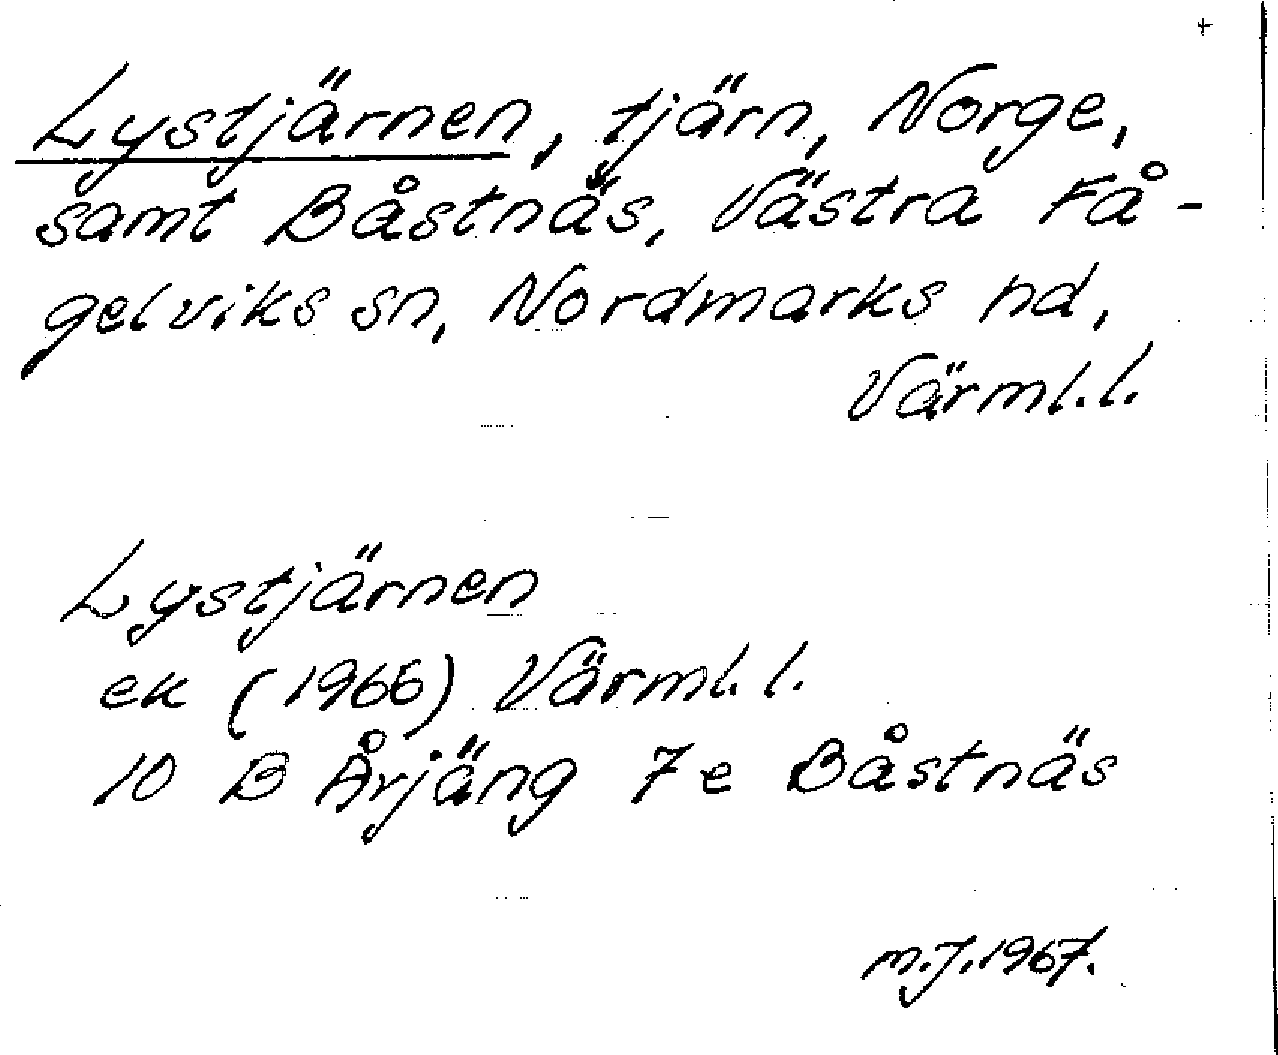 +
Lystjärnen, tjärn, Norge,
samt Båstnäs, Västra Få-
gelviks sn, Nordmarks hd,
Värml.l.
Lystjärnen
ek (1966) Värml.l.
10 B Årjäng 7e Båstnäs
M.J.1967.